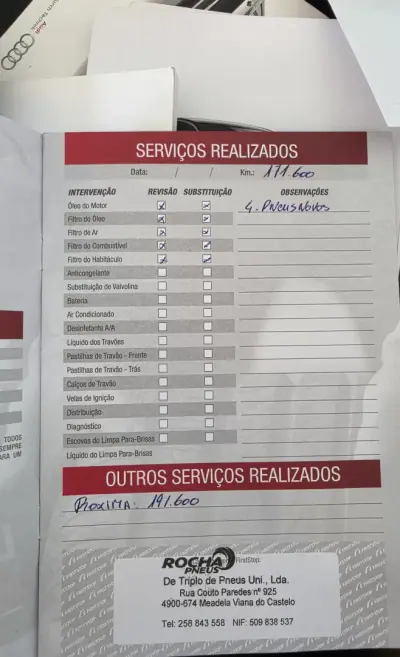 Audi
SERVIÇOS REALIZADOS
Data: / / Km.: 171.600
INTERVENÇÃO REVISÃO SUBSTITUIÇÃO OBSERVAÇÕES
Óleo do Motor 4. PNEUS NOVOS
Filtro do Óleo
Filtro de Ar
Filtro do Combustível
Filtro do Habitáculo
Anticongelante
Substituição de Valvolina
Bateria
Ar Condicionado
Desinfetante A/A
Líquido dos Travões
Pastilhas de Travão - Frente
Pastilhas de Travão - Trás
Calços de Travão
Velas de Ignição
Distribuição
Diagnóstico
Escovas do Limpa Para-Brisas
Líquido do Limpa Para-Brisas
TODOS
SEMPRE
ARA UM
OUTROS SERVIÇOS REALIZADOS
PROXIMA: 191.600
ROCHA
PNEUS
FirstStop.
De Triplo de Pneus Uni., Lda.
Rua Couto Paredes nº 925
4900-674 Meadela Viana do Castelo
Tel: 258 843 558 NIF: 509 838 537